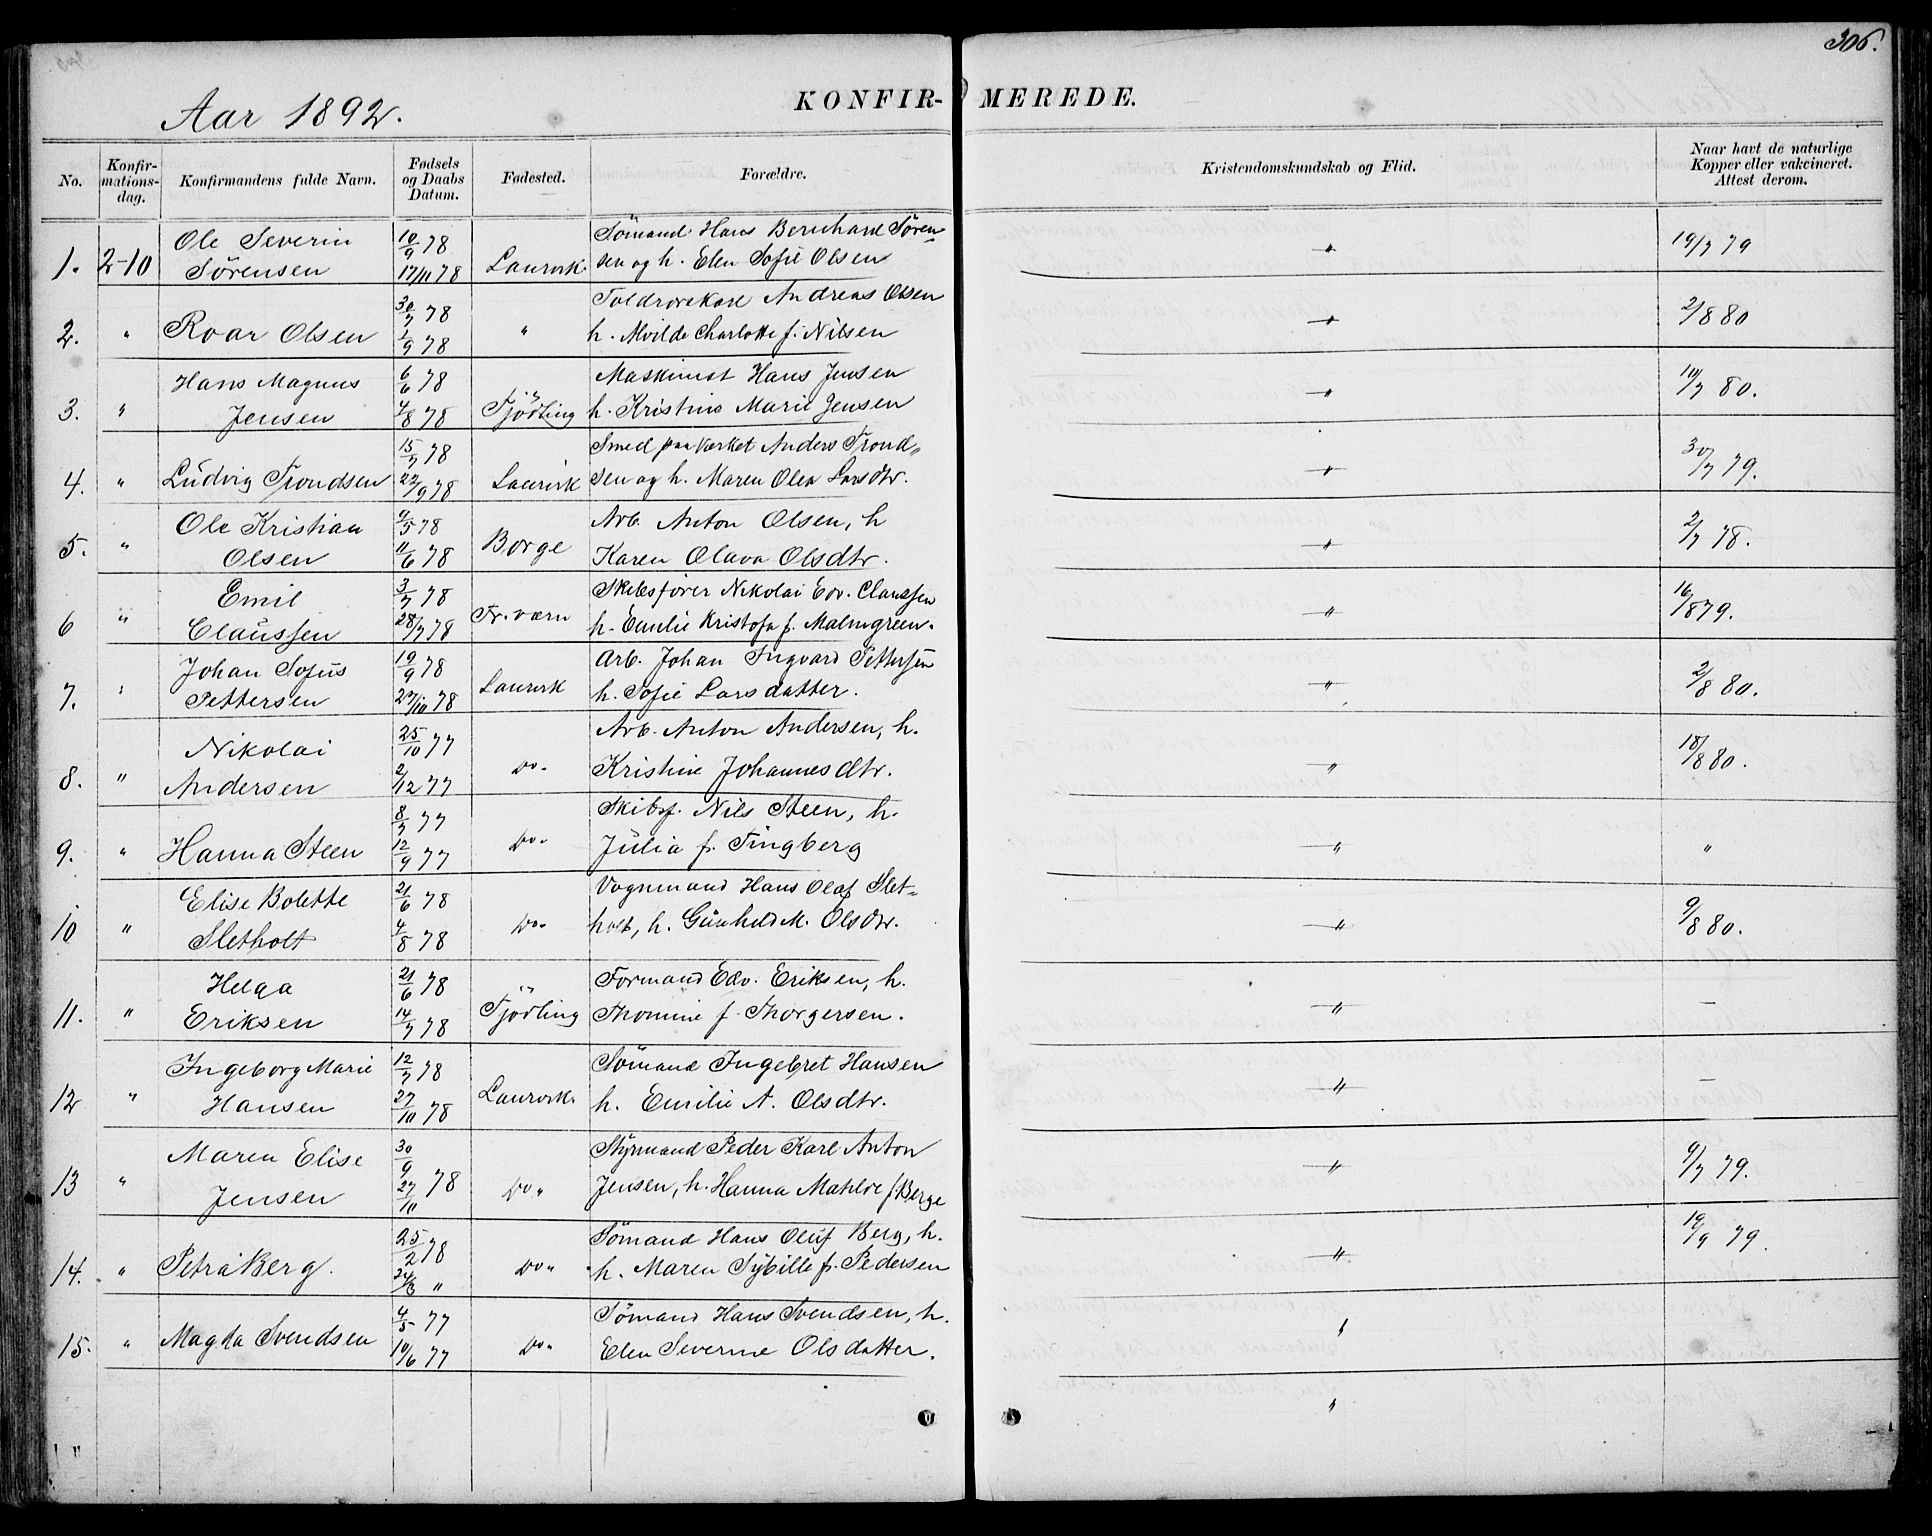 306.
Aar 1892.
KONFIR-MEREDE.
No. Konfir-mations-dag. Konfirmandens fulde Navn. Fødsels og Daabs Datum. Fødested. Forældre. Kristendomskundskab og Flid. Naar havt de naturlige Kopper eller vakcineret. Attest derom.
Ole Severin 10/9 78 Sömand Hans Bernhard Sören-
1. 2-10 Sørensen 17/11 78 Laurvik sen og h. Elen Sofie Olsen " 19/7 79
30/7 78 Toldrorskarl Andreas Olsen
2. " Roar Olsen 1/9 78 " h. Mvilde Charlotte f. Nilsen " 2/8 80
Hans Magnus 6/6 78 Maskinist Hans Jensen
3. " Jensen 4/8 78 Tjödling h. Kristine Marie Jensen " 10/7 80.
15/7 78 Smed paa Værket Anders Trond„
4. " Ludvig Trondsen 22/9 78 Laurvik sen og h. Maren Olea Larsdtr. " 30/7 79.
Ole Kristian 4/5 78 Arb. Anton Olsen, h
5. " Olsen 11/6 78 Borge Karen Olava Olsdtr. " 2/7 78.
Emil 3/7 78 Skibsfører Nikolai Edv. Claussen
6 " Claussen 28/7 78 Fr. værn h. Emilie Kristofa f. Malmgreen. " 16/8 79.
Johan Sofus 19/9 78 Arb. Johan Ingvard Pettersen
7. " Pettersen 27/10 78 Laurvik h. Sofie Larsdatter. " 2/8 80.
Nikolai 25/10 77 Arb. Anton Andersen, h.
8. " Andersen 2/12 77 Do. Kristine Johannesdtr. " 18/8 80.
8/7 77 Skibsf. Nils Steen, h.
9. " Hanna Steen 12/9 77 Do. Julia f. Tingberg " "
Elise Bolette 21/6 78 Vognmand Hans Olaf Slet-
10 " Sletholt 4/8 78 Do. holt, h. Gunhild M. Olsdtr. " 9/8 80.
Helga 21/6 78 Formand Edv. Eriksen, h.
11. " Eriksen 14/7 78 Tjödling Thomine f. Thorgersen. " —
Ingeborg Marie 12/7 78 Sömand Ingebret Hansen
12 " Hansen 27/10 78 Laurvik. h. Emilie A. Olsdtr. " —
Maren Elise 30/9 Styrmand Peder Karl Anton
13 " Jensen 27/10 78 Do " Jensen, h. Hanna Matilde f. Berge " 9/7 79.
25/2 78 Sömand Hans Oluf Berg, h.
14. " Petra Berg. 24/3 " Do " h. Maren Sybille f. Pedersen " 19/9 79.
4/5 77 Sömand Hans Svendsen, h.
15. " Magda Svendsen 10/6 77 Do. Elen Severine Olsdatter. "
"